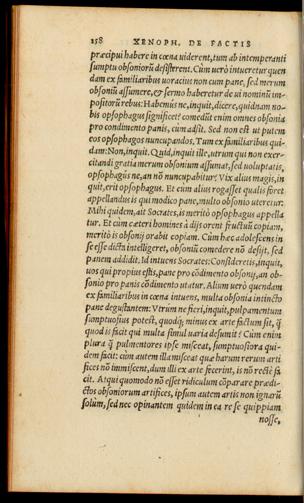 258 XENOPH. DE FACTIS
præcipui habere in cœna uiderent, tum ab intemperanti
sumptu obsoniorū desisterent. Cùm uerò intueretur quen
dam ex familiaribus uoracius non cum pane, sed merum
obsoniū assumere, & sermo haberetur de ui nominū im-
positorū rebus: Habemus ne, inquit, dicere, quidnam no-
bis opsophagus significet? comedūt enim omnes obsonia
pro condimento panis, cum adsit. Sed non est ut putem
eos opsophagos nuncupandos. Tum ex familiaribus qui-
dam: Non, inquit. Quid, inquit ille, utrum qui non exer-
citandi gratia merum obsonium assumat, sed uoluptatis,
opsophagus ne, an nō nuncupabitur? Vix alius magis, in
quit, erit opsophagus. Et cum alius rogasset qualis foret
appellandus is qui modico pane, multo obsonio uteretur:
Mihi quidem, ait Socrates, is meritò opsophagus appella
tur. Et cùm cæteri homines à dijs orent fructuū copiam,
meritò is obsonij orabit copiam. Cùm hæc adolescens in
se esse dicta intelligeret, obsoniū comedere nō desijt, sed
panem addidit. Id intuens Socrates: Consideretis, inquit,
uos qui propius estis, pane pro cōdimento obsonij, an ob-
sonio pro panis cōdimento utatur. Alium uerò quendam
ex familiaribus in cœna intuens, multa obsonia intincto
pane degustantem: Vtrum ne fieri, inquit, pulpamentum
sumptuosius potest, quodq; minus ex arte factum sit, q̃
quod is facit qui multa simul uaria desumit? Cùm enim
plura q̃ pulmentores ipse misceat, sumptuosiora qui-
dem facit: cùm autem illa misceat quæ harum rerum arti
fices nō immiscent, dum illi ex arte fecerint, is nō rectè fa
cit. Atqui quomodo nō esset ridiculum cōparare prædi-
ctos obsoniorum artifices, ipsum autem artis non ignarū
solùm, sed nec opinantem quidem in ea re se quippiam
nosse,